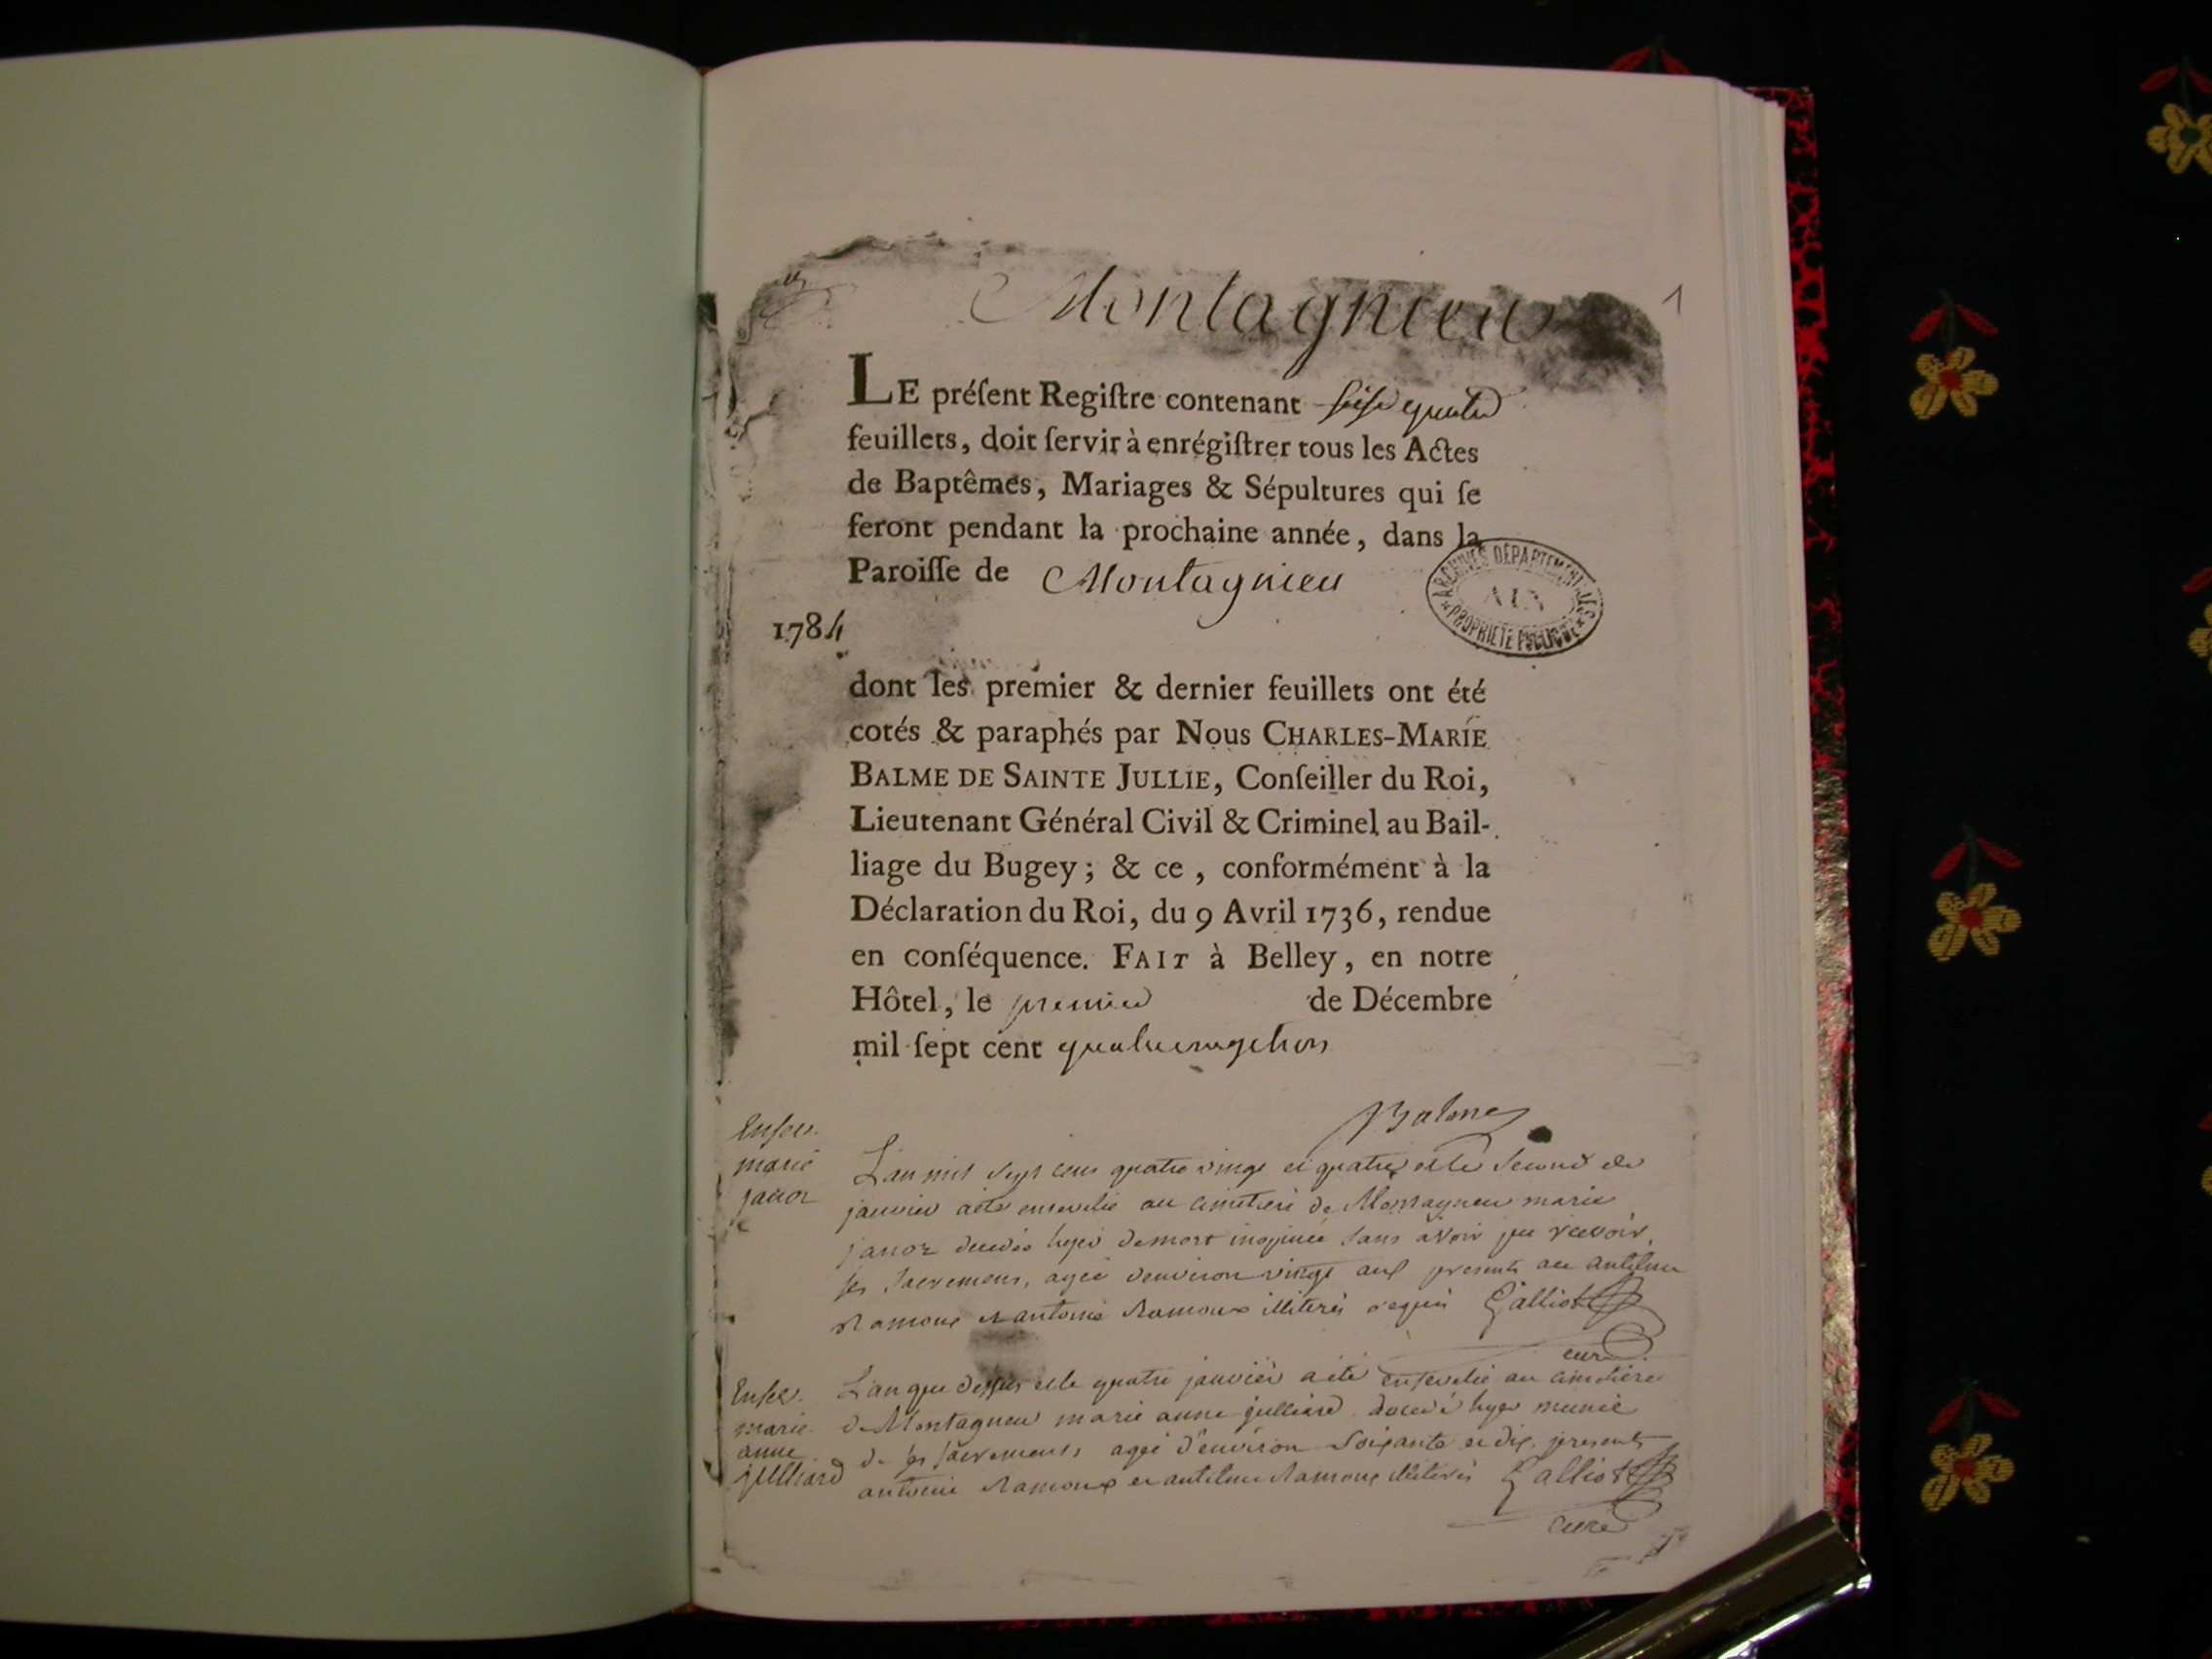 Montagnieu
1
LE préſent Regiſtre contenant
feuillets, doit ſervir à enrégiſtrer tous les Actes
de Baptêmes, Mariages & Sépultures qui ſe
feront pendant la prochaine année, dans la
Paroiſſe de Montagnieu
ARCHIVES DÉPARTEMENTALES
AIN
PROPRIÉTÉ PUBLIQUE
1784
dont les premier & dernier feuillets ont été
cotés & paraphés par Nous CHARLES-MARIE
BALME DE SAINTE JULLIE, Conſeiller du Roi,
Lieutenant Général Civil & Criminel au Bail-
liage du Bugey; & ce, conformément à la
Déclaration du Roi, du 9 Avril 1736, rendue
en conſéquence. FAIT à Belley, en notre
Hôtel, le premier de Décembre
mil ſept cent quatrevingttrois
Balme
Ensev.
marie
janoz
L'an mil sept cens quatre vingt et quatre et le second de
janvier a été ensevelie au cimetiere de Montagneu marie
janoz decedée hyer de mort inopinée sans avoir pu recevoir
ses sacremens, agée d'environ vingt ans presents antelme
Ramoux et antoine Ramoux illiterés requis Galliot
curé
Ensev.
marie
anne
julliard
L'an que dessus et le quatre janvier a été ensevelie au cimetiere
de Montagneu marie anne julliard decedé hyer munie
de ses sacrements agée d'environ soixante et dix, presents
antoine Ramoux et antelme Ramoux illiterés Galliot
curé